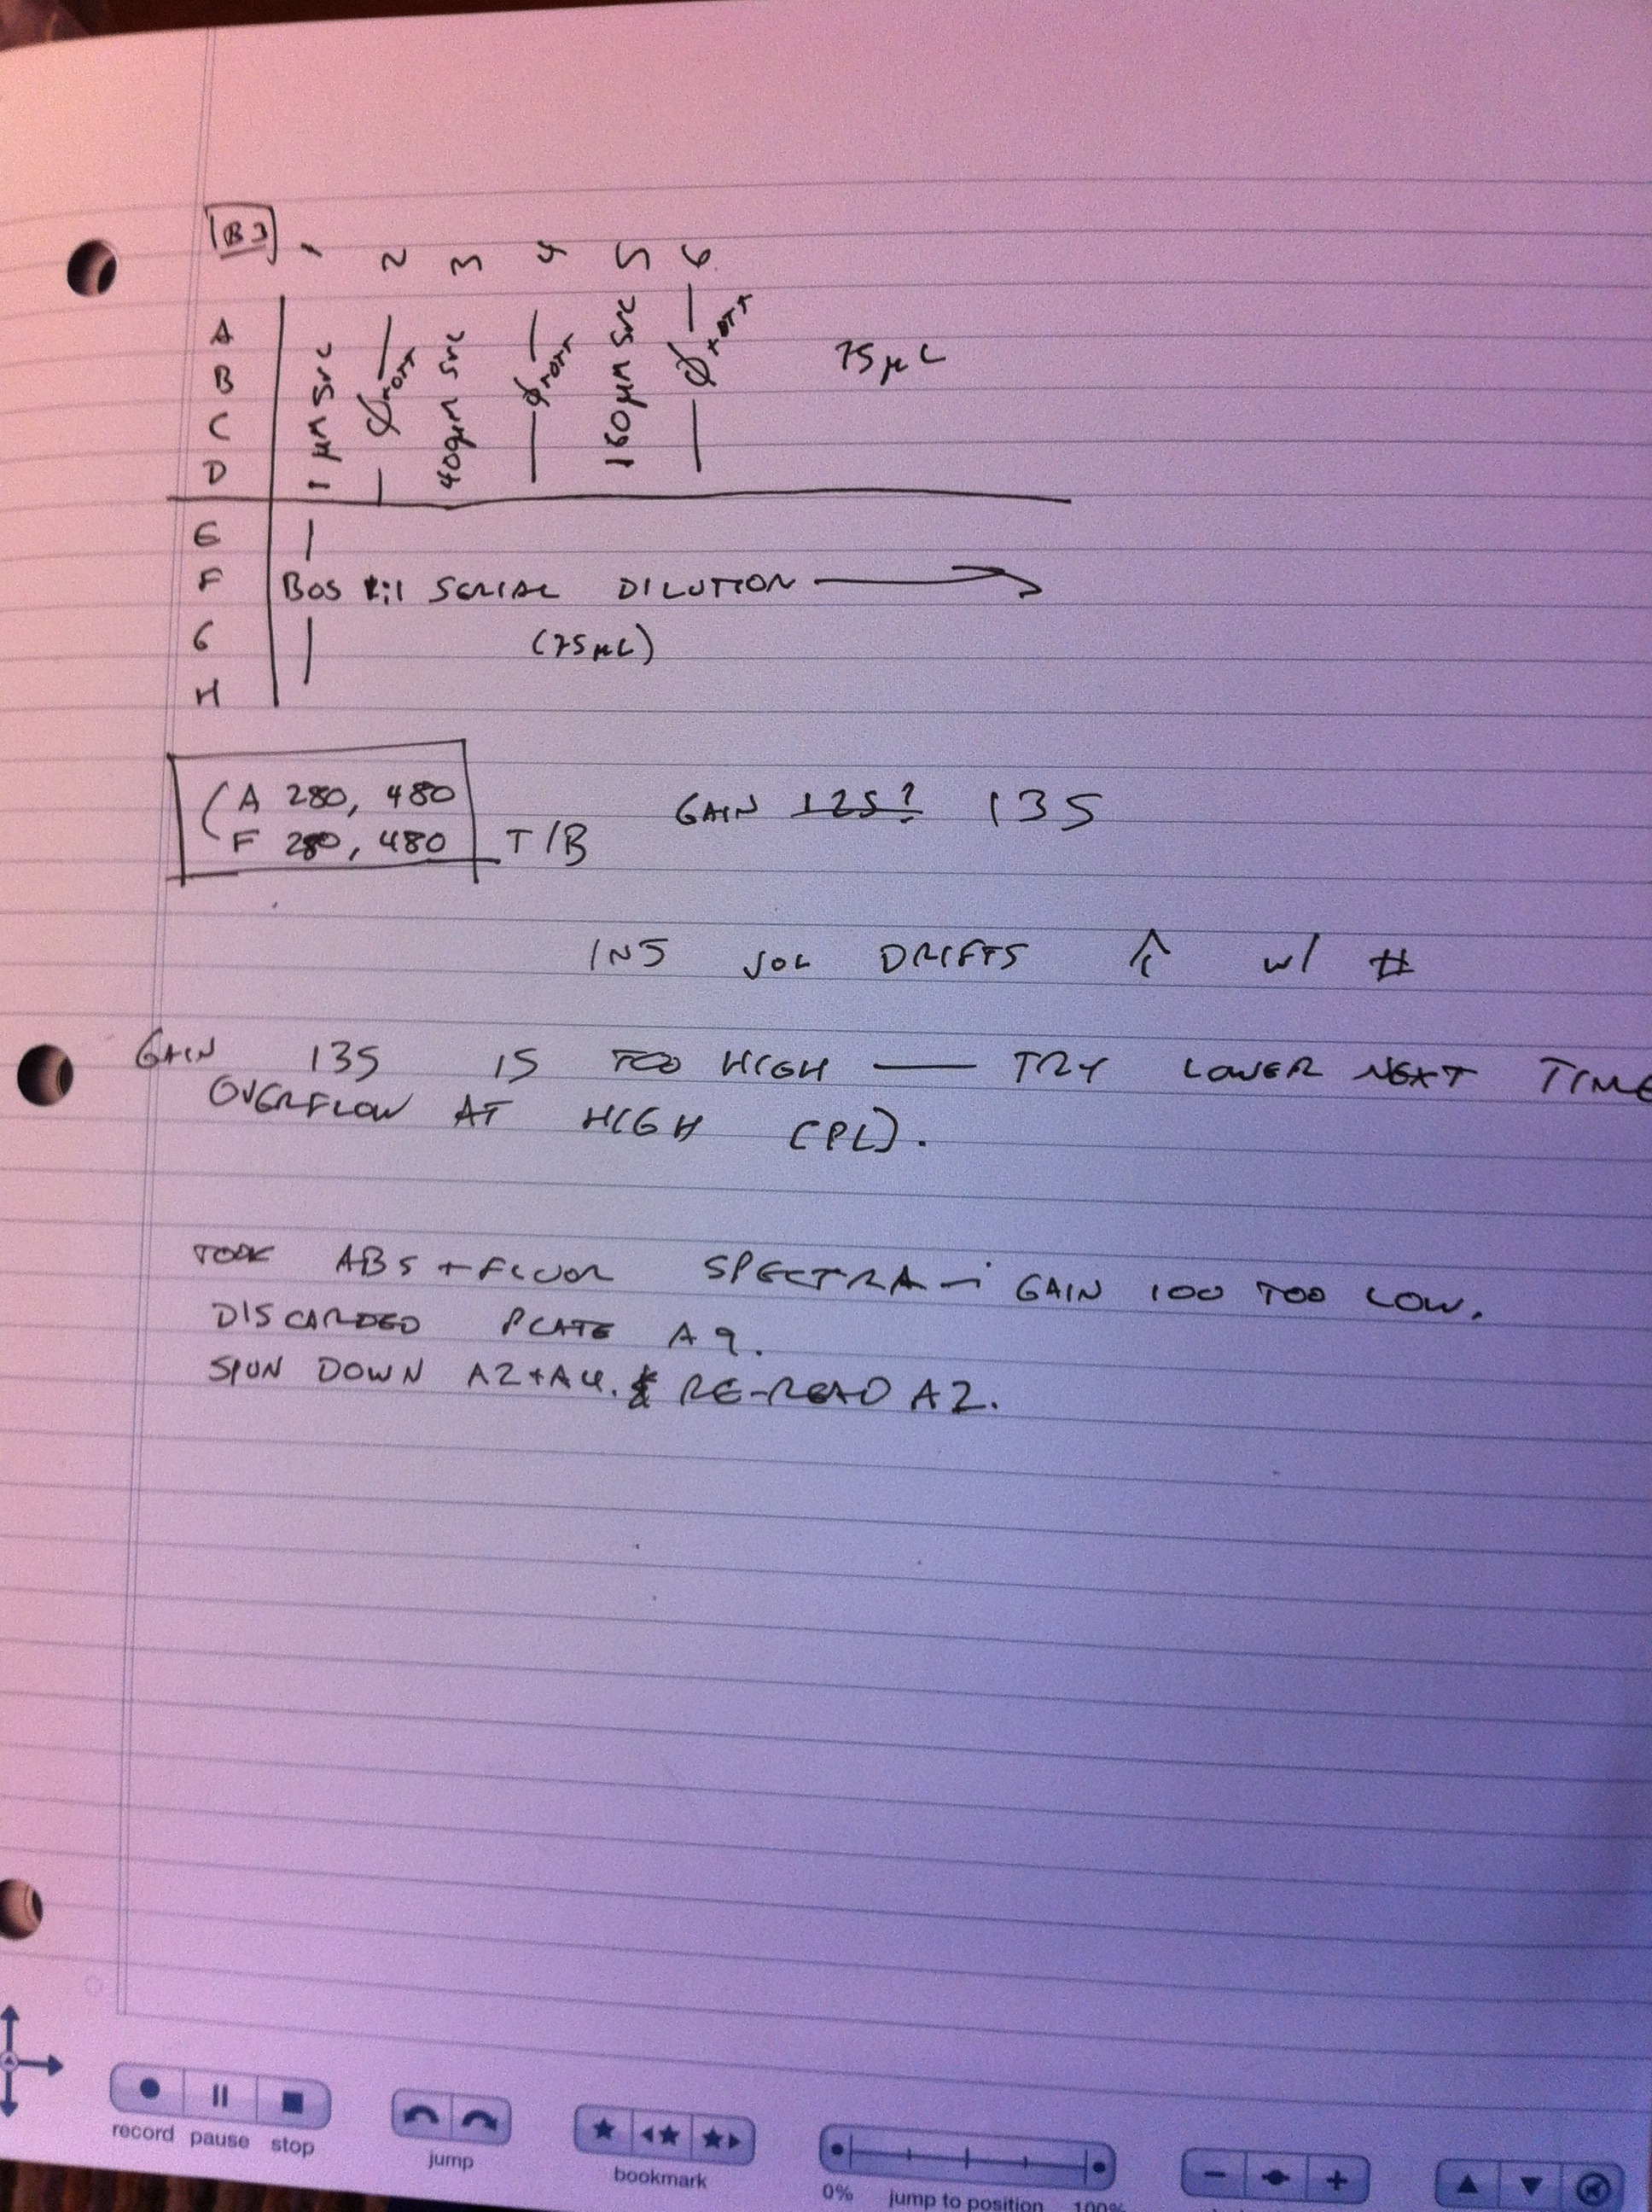 B3 1 2 3 4 5 6
A
B
C
D
1 µM Src
Ø
40 µM Src
Ø
160 µM Src
Ø
75 µL
E
F BOS 1:1 SERIAL DILUTION →
G (75 µL)
H
A 280, 480
F 280, 480 T/B GAIN 125? 135
INJ VOL DRIFTS ↑ w/ #
GAIN 135 IS TOO HIGH — TRY LOWER NEXT TIME
OVERFLOW AT HIGH [PL].
TOOK ABS + FLUOR SPECTRA — GAIN 100 TOO LOW.
DISCARDED PLATE A9.
SPUN DOWN A2+A4. & RE-READ A2.
record pause stop
jump
bookmark
0% jump to position 100%